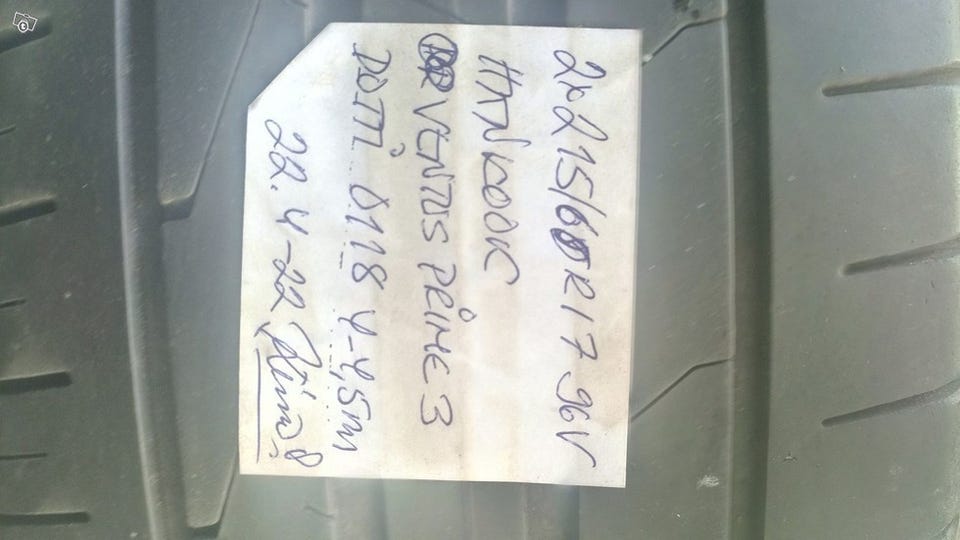 2x215/60R17 96V
HANKOOK
VENTUS PRIME 3
DOTTI 0118 4-4,5mm
22.4-22